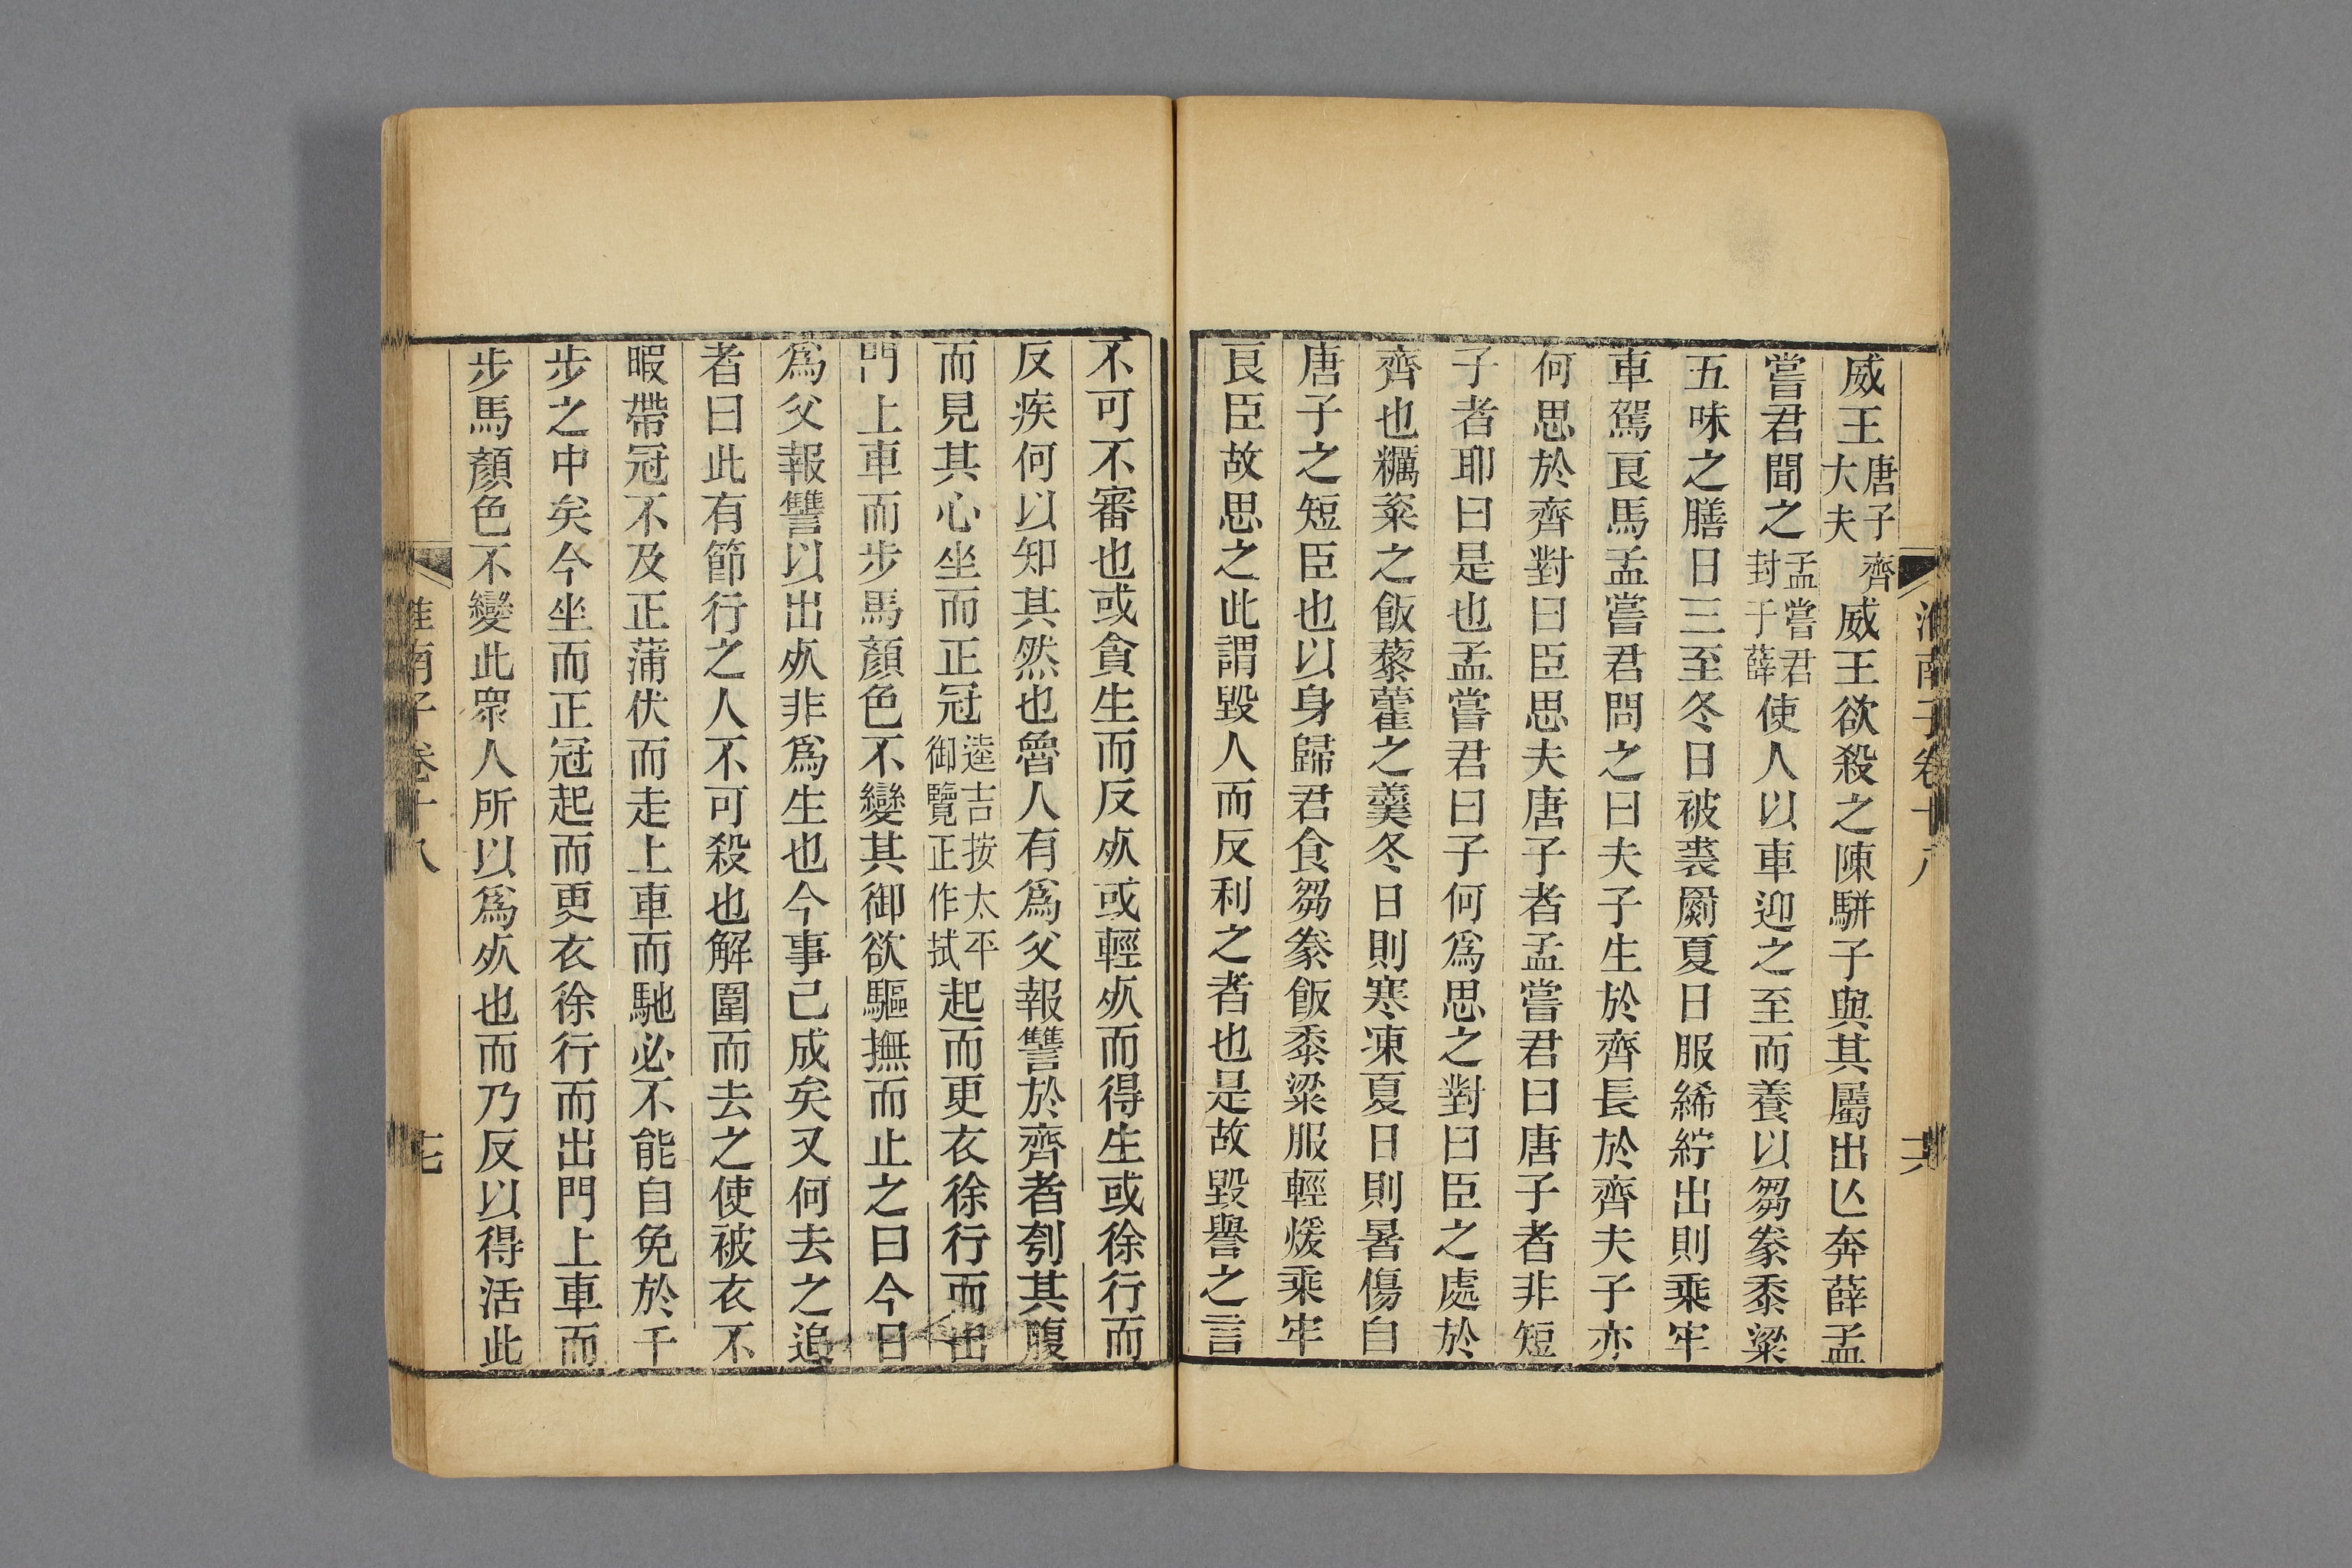 淮南子卷十八
十六
威王唐子齊大夫威王欲殺之陳駢子與其屬出亾奔薛孟
嘗君聞之孟嘗君封于薛使人以車迎之至而養以芻豢黍粱
五味之膳日三至冬日被裘罽夏日服絺紵出則乘牢
車駕良馬孟嘗君問之曰夫子生於齊長於齊夫子亦
何思於齊對曰臣思夫唐子者孟嘗君曰唐子者非短
子者耶曰是也孟嘗君曰子何爲思之對曰臣之處於
齊也糲粢之飯藜藿之羹冬日則寒凍夏日則暑傷自
唐子之短臣也以身歸君食芻豢飯黍粱服輕煖乘牢
良臣故思之此謂毀人而反利之者也是故毀譽之言
不可不審也或貪生而反㱩或輕㱩而得生或徐行而
反疾何以知其然也魯人有爲父報讐於齊者刳其腹
而見其心坐而正冠逵吉按太平御覽正作拭起而更衣徐行而出
門上車而步馬顏色不變其御欲驅撫而止之曰今日
爲父報讐以出㱩非爲生也今事已成矣又何去之追
者曰此有節行之人不可殺也解圍而去之使被衣不
暇帶冠不及正蒲伏而走上車而馳必不能自免於千
步之中矣今坐而正冠起而更衣徐行而出門上車而
步馬顏色不變此眾人所以爲㱩也而乃反以得活此
淮南子卷十八
十七